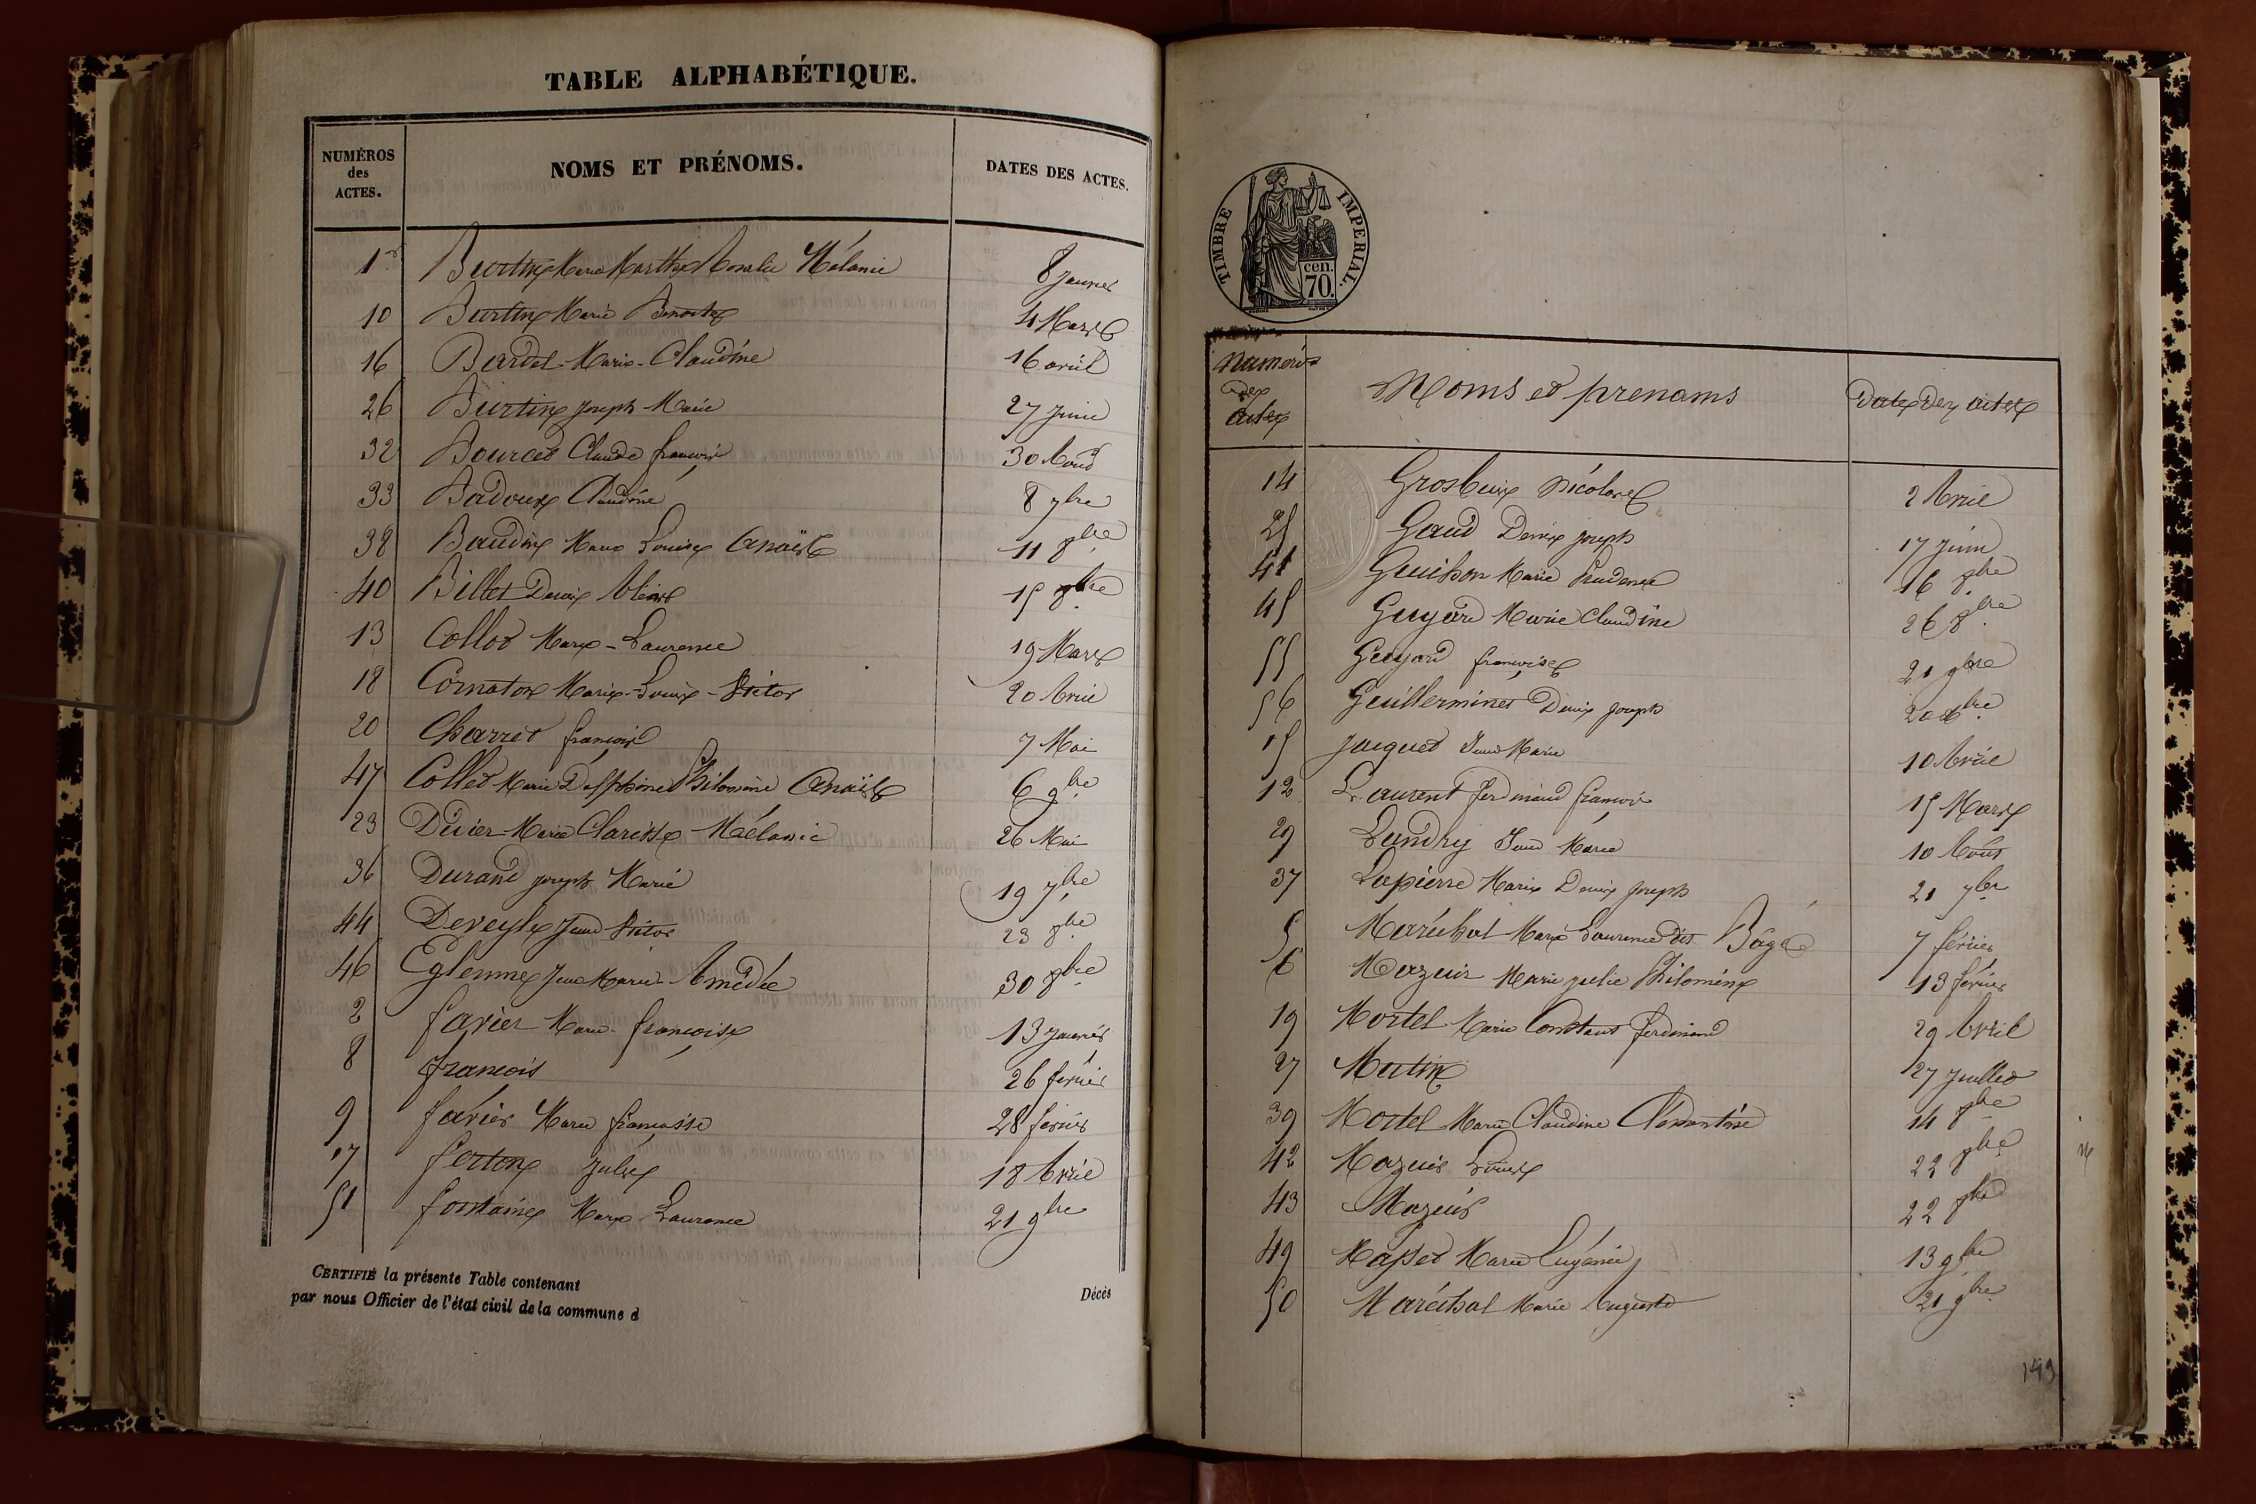 TABLE ALPHABÉTIQUE.
NUMÉROS
des
ACTES.
NOMS ET PRÉNOMS.
DATES DES ACTES.
1er Burtin Marie Marthe Rosalie Mélanie 8 janvier
10 Burtin Marie Benoite 4 Mars
16 Bardet Marie-Claudine 16 avril
26 Burtin joseph-Marie 27 Juin
32 Bourcet Claude françois 30 Aout
33 Badoux Claudine 8 7bre
38 Baudin Marie Louise Anaïs 11 8bre
40 Billet Denis 15 8bre
13 Collot Marie-Laurence 19 Mars
18 Cornaton Marie-Louis-Victor 20 Avril
20 Charret françois 7 Mai
47 Collet Marie Delphine Philomène Anaïs 6 9bre
23 Didier Marie Clarisse Mélanie 26 Mai
36 Durand joseph Marie 19 7bre
44 Deveyle Jean Victor 23 8bre
46 Eglemme Jean Marie Amédée 30 8bre
2 favier Marie-françoise 13 janvier
8 françois 26 fevrier
9 favier Marie françoise 28 fevrier
17 ferton Jules 18 Avril
51 fontaine Marie Laurence 21 9bre
CERTIFIÉ la présente Table contenant
Décès
par nous Officier de l'état civil de la commune d
TIMBRE IMPERIAL.
cen.
70.
Numeros
des
actes
Noms et prenoms
Dates des actes
14 Grosbuis Nicolas 2 Avril
25 Gaud Denis joseph 17 Juin
41 Guichon Marie Prudence 16 8bre
45 Guyard Marie Claudine 26 8bre
55 Guyard françoise 21 9bre
56 Guillerminet Denis joseph 20 xbre
15 Jacquet Jean Marie 10 Avril
12 Laurent ferdinand françois 15 Mars
29 Landry Jean Marie 10 Aout
37 Lapierre Marie Denis joseph 21 7bre
5 Maréchal Marie Laurence dit Bagé 7 fevrier
6 Mazuir Marie julie Philomène 13 fevrier
19 Mortel Marie Constant ferdinand 29 Avril
27 Martin 27 Juillet
39 Mortel Marie Claudine 14 8bre
42 Mazuir Louise 22 8bre
43 Mazuir 22 8bre
49 Masset Marie Eugénie 13 9bre
50 Maréchal Marie Auguste 21 9bre
143